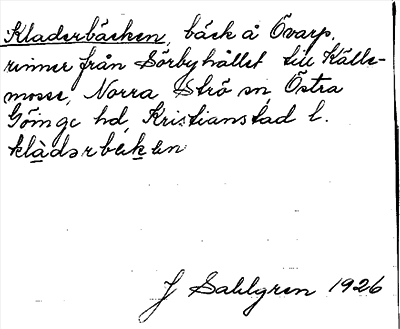 Kladerbäcken, bäck å Övarp,
rinner från Sörbyhållet till Källe-
mosse, Norra Strö sn, Östra
Göinge hd, Kristianstad l.
klàdərbɛkɛn
J Sahlgren 1926